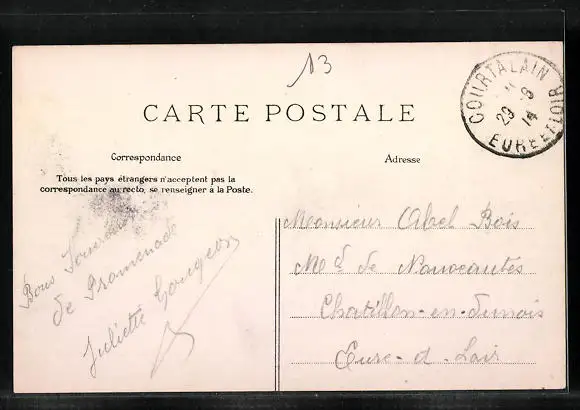 13
CARTE POSTALE
COURTALAIN
29 9 14
EURE ET LOIR
Correspondance
Adresse
Tous les pays étrangers n'acceptent pas la
correspondance au recto, se renseigner à la Poste.
Bons Souvenirs
de Promenade
Juliette
Monsieur Abel Bois
Md de Nouveautés
Chatillon-en-Dunois
Eure-&-Loir